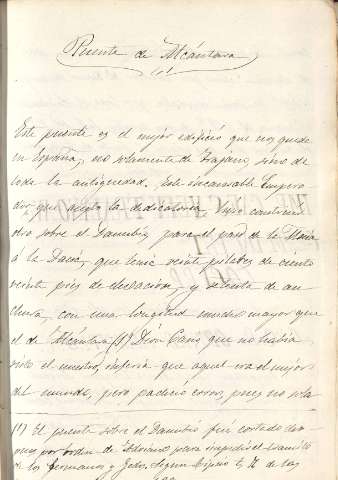 Puente de Alcántara
Este puente es el mejor edificio que nos quede
en España, no solamente de Trajano, sino de
toda la antiguedad. Este incansable Empera-
dor que acepto la dedicatoria hizo construir
otro sobre el Danubio, para el paso de la Mesia
á la Dacia, que tenia veinte pilares de ciento
veinte pies de elevacion, y sesenta de an-
chura, con una longitud mucho mayor que
el de Alcántara (1) Dion Casio que no habia
visto el nuestro, inferia que aquel era el mejor
del mundo, pero padeció error, pues no sola
(1) El puente sobre el Danubio fué cortado des-
pues por orden de Adriano para impedir el transito
de los Germanos y Getas, segun de las